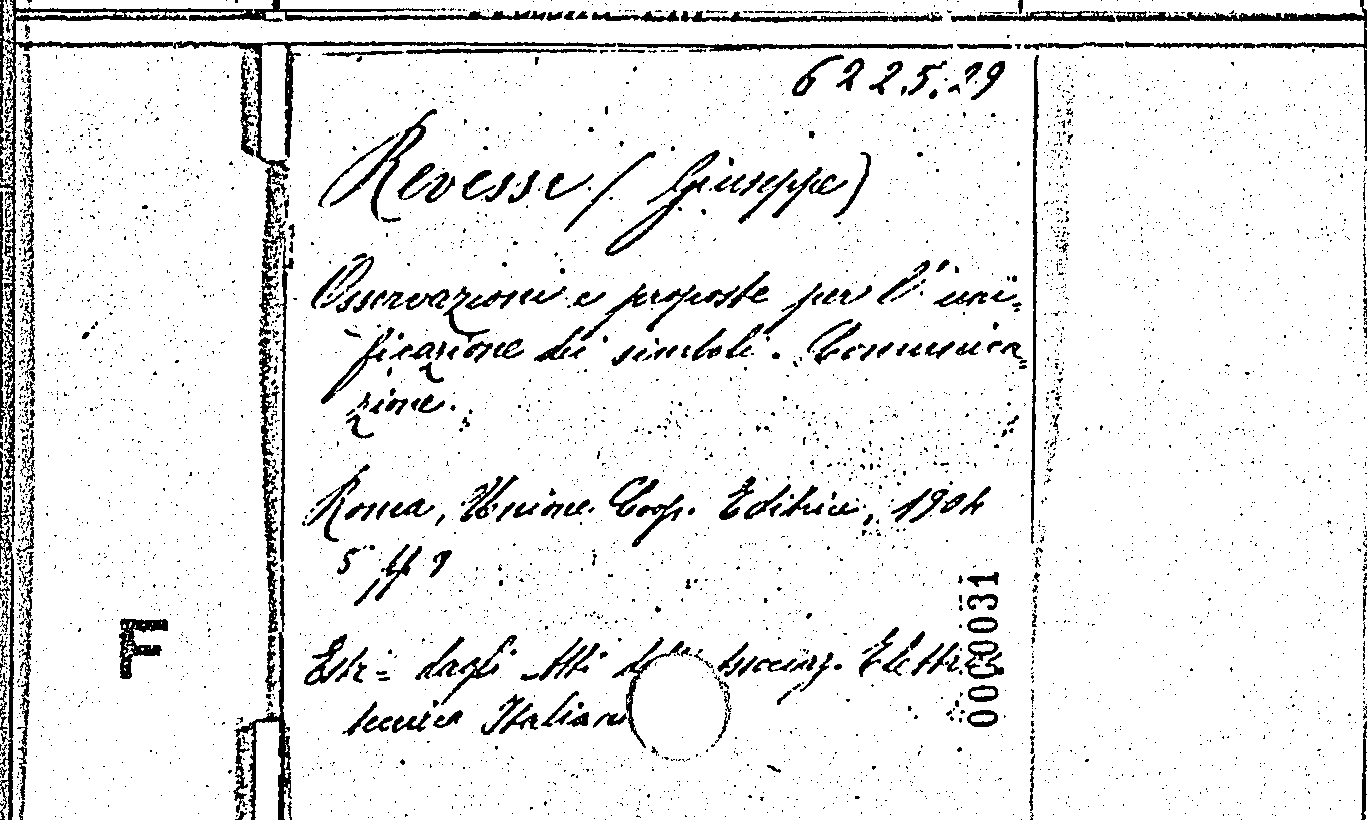 6225.29
Revessi (Giuseppe)
Osservazioni e proposte per l'uni-
ficazione dei simboli. Comunica-
zione.
Roma, Unione Coop. Editrice, 1904
5
Estr= dagli Atti Associaz. Elettro
tecnica Italiana
F
0000031